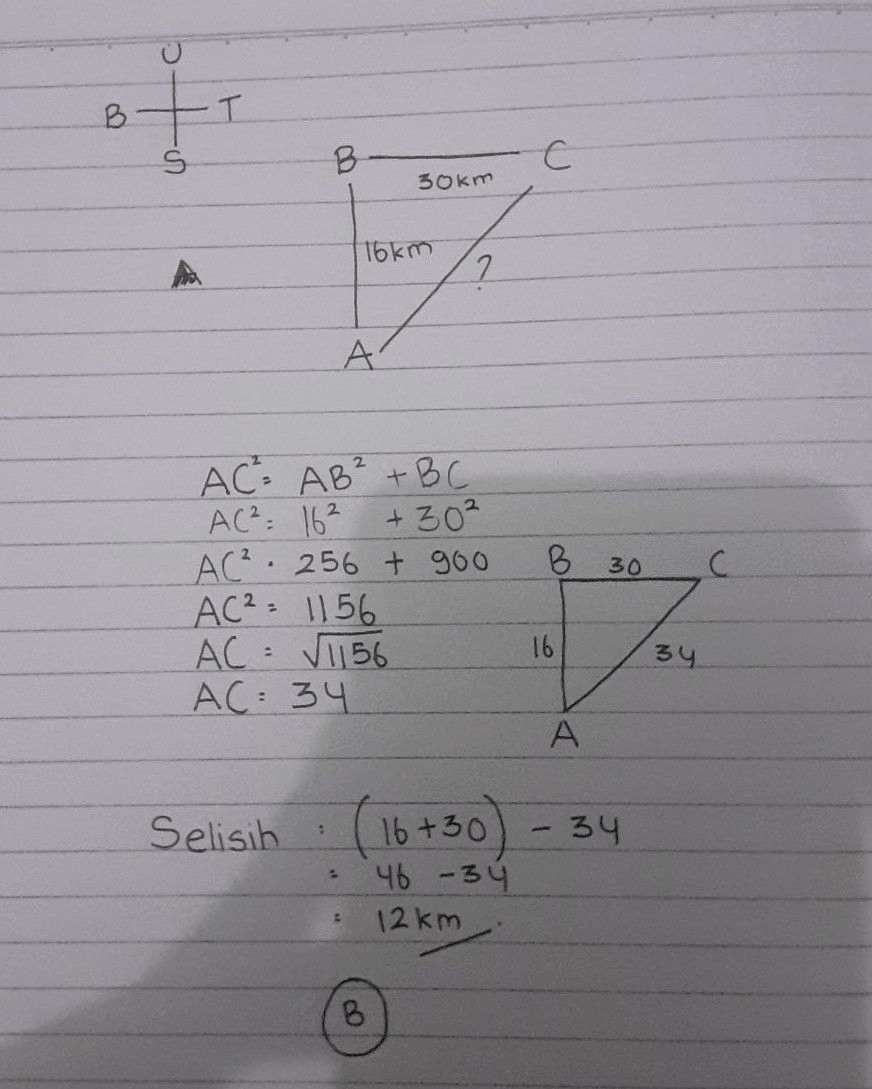 U
B T
S
B C
30km
16km
?
A
AC²= AB² + BC
AC²= 16² + 30²
AC² = 256 + 900
AC² = 1156
AC = √1156
AC = 34
B 30 C
16 34
A
Selisih : (16+30) - 34
= 46 - 34
= 12km
B